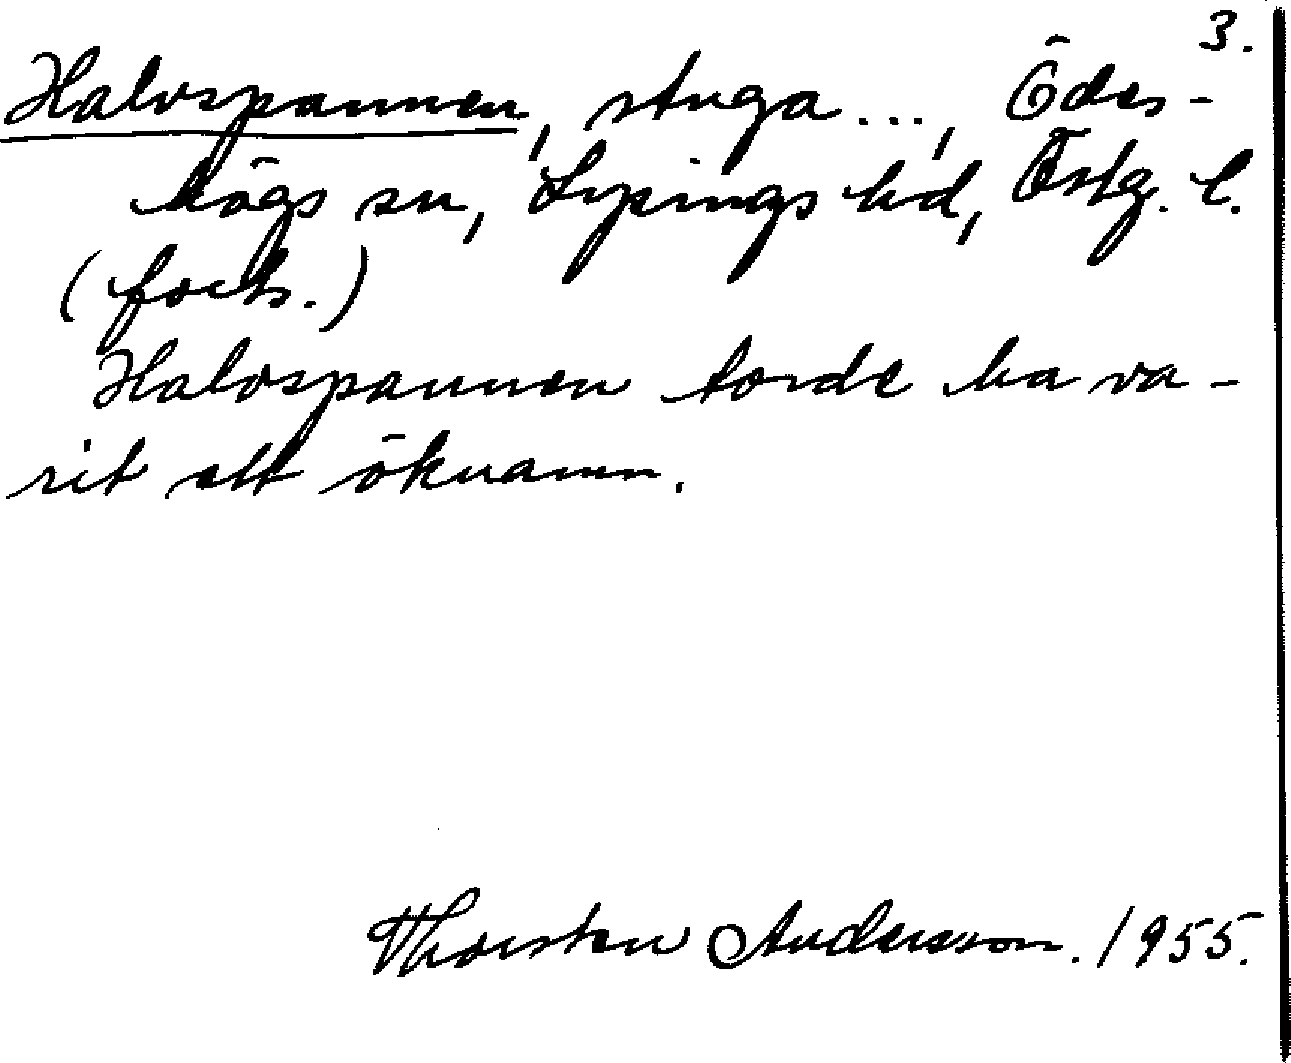 3.
Halvspannen, stuga ..., Ödes-
högs sn, Lysings hd, Östg. l.
(forts.)
Halvspannen torde ha va-
rit ett öknamn.
Thorsten Andersson. 1955.